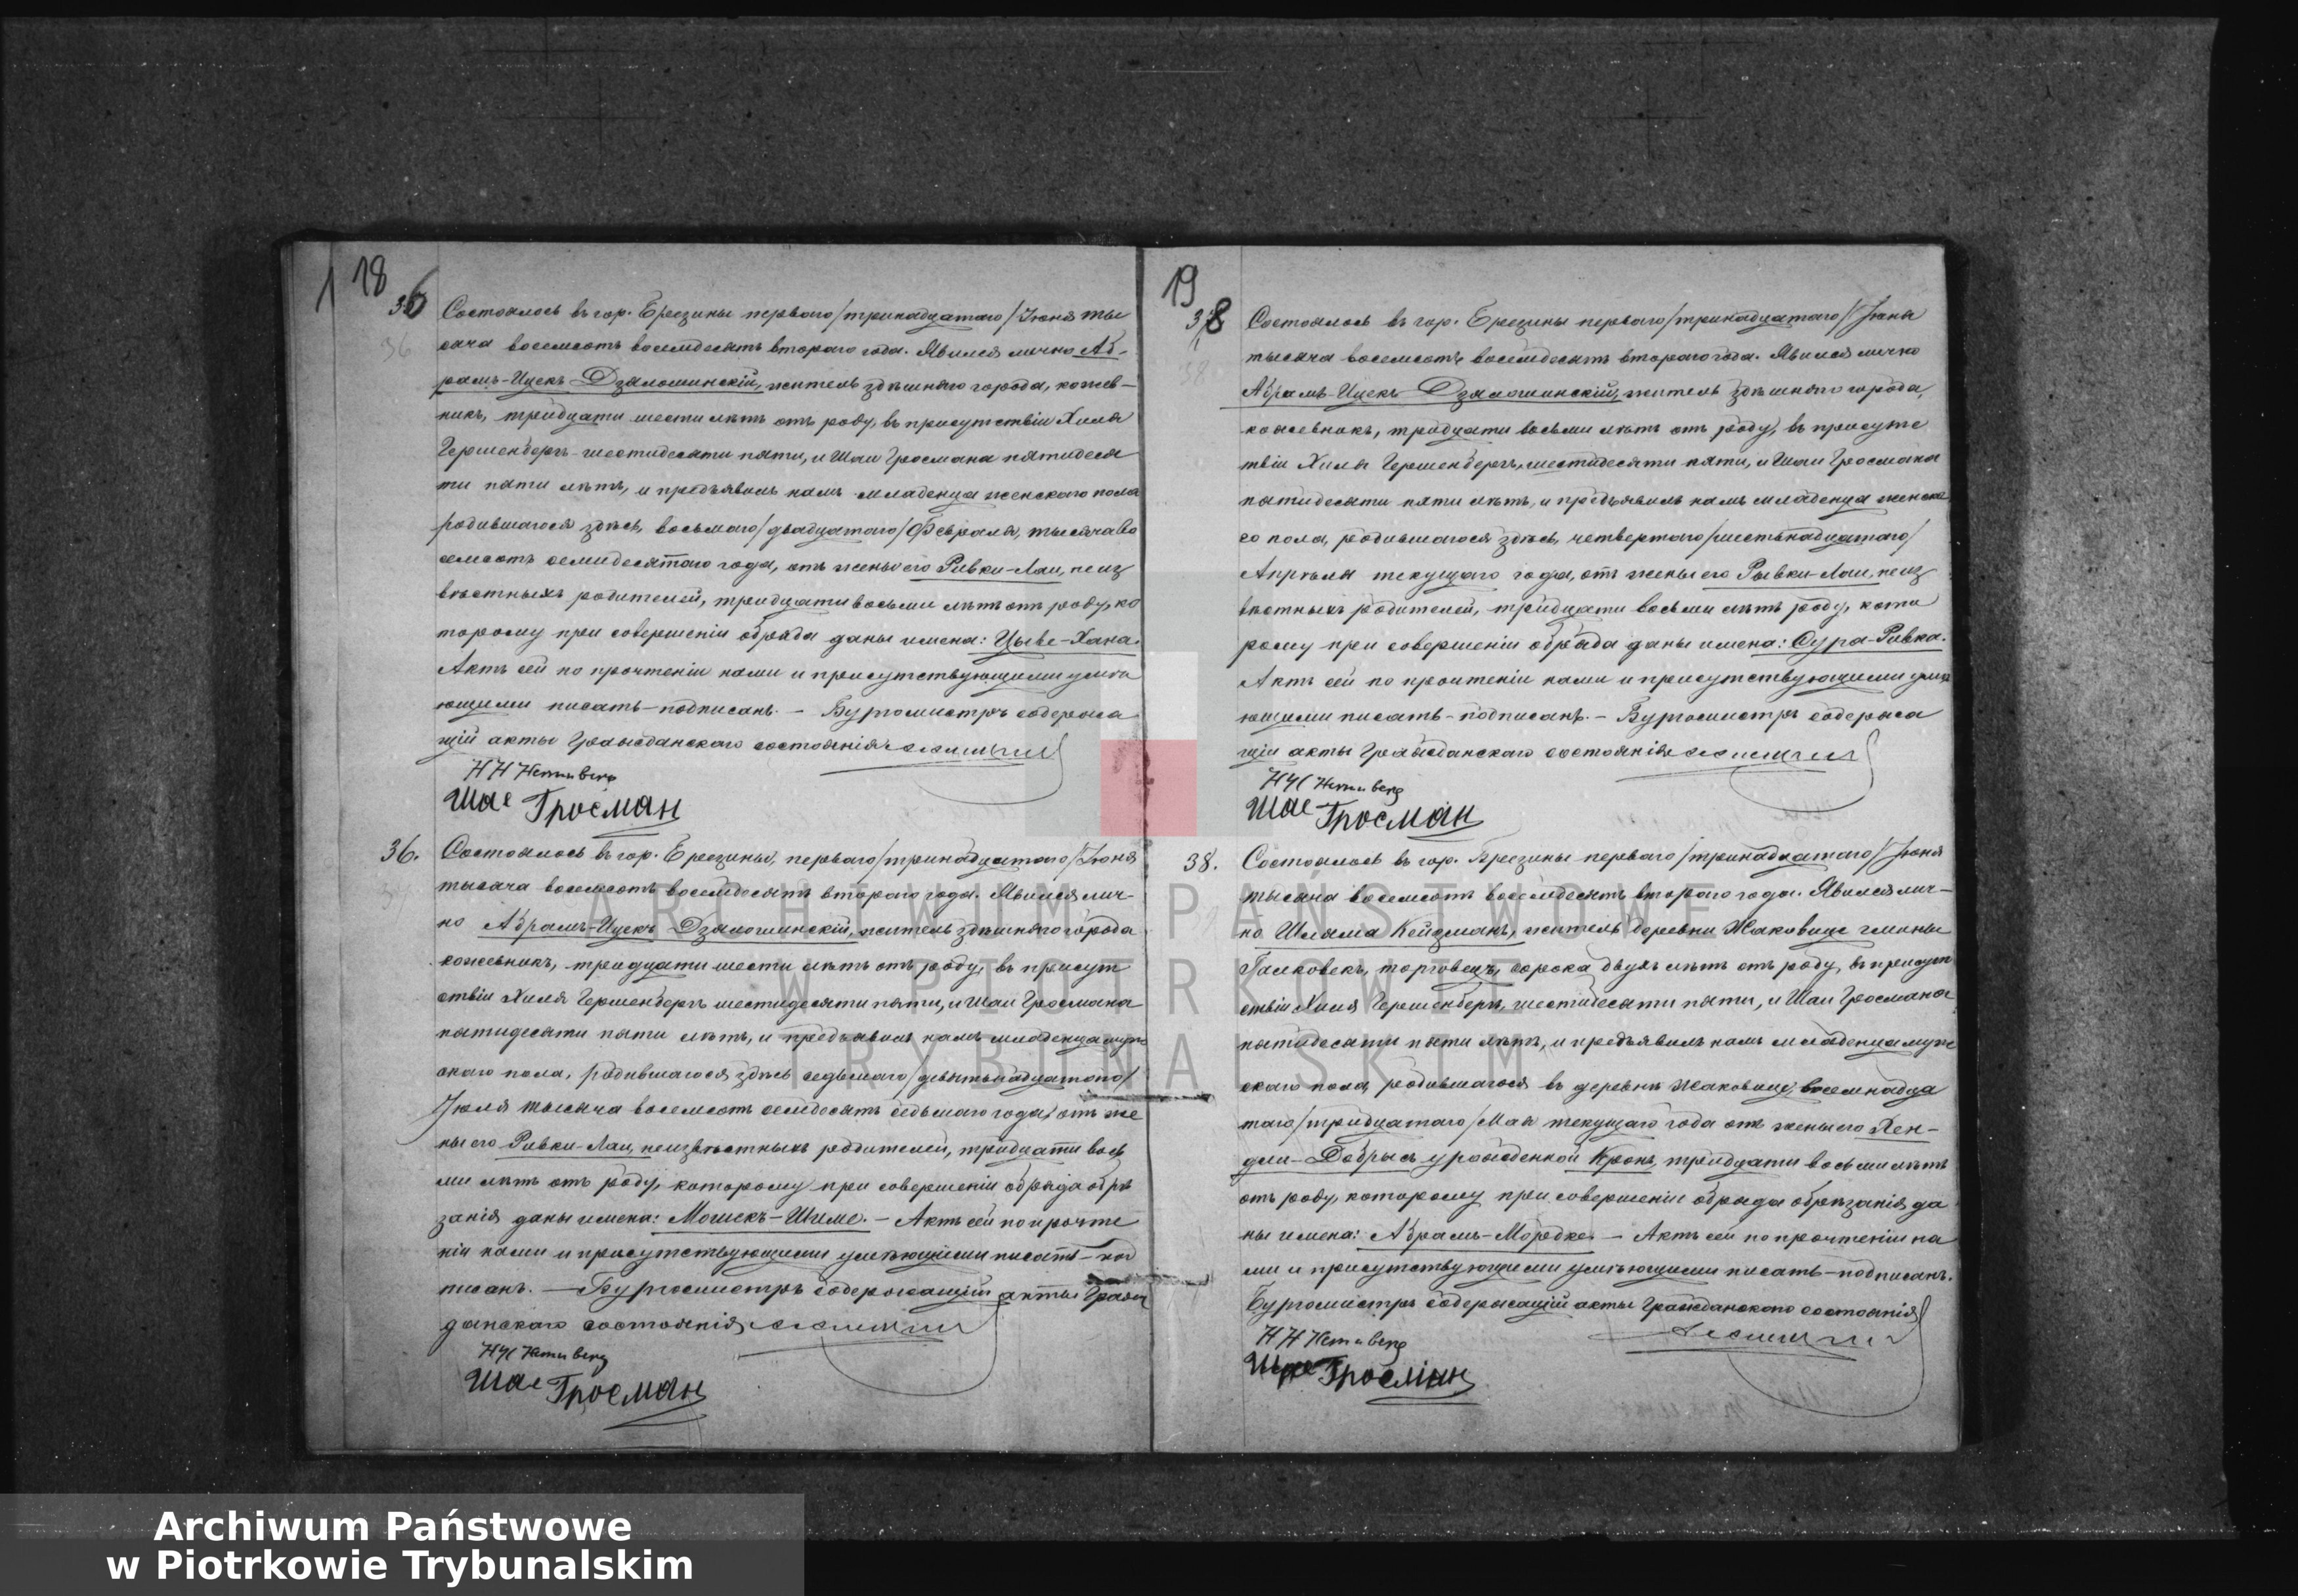 18
36 Состоялось въ гор. Брезины перваго/тринадцатаго/Іюня ты
сяча восемсотъ восемдесятъ втораго года. Явился лично Аб-
рамъ-Ицекъ Дзялошинскій, житель здѣшняго города, кожев-
никъ, тридцати шести лѣтъ отъ роду, въ присутствіи Хиля
Гершенбергъ шестидесяти пяти, и Шаи Гросмана пятидеся
ти пяти лѣтъ, и предъявилъ намъ младенца женскаго пола
родившагося здѣсь, восьмаго/двадцатаго/Февраля, тысяча во
семсотъ семидесятого года, отъ жены его Ривки-Лаи, неиз
вѣстныхъ родителей, тридцати восьми лѣтъ отъ роду, ко
торому при совершеніи обряда даны имена: Цывье-Хана.
Актъ сей по прочтеніи нами и присутствующими умѣю
ющими писать-подписанъ. - Бургомистръ содержа
щій акты Гражданскаго состоянія
Шае Гросман
36. Состоялось въ гор. Брезины, перваго/тринадцатаго/Іюня
тысяча восемсотъ восемдесятъ втораго года. Явился лич-
но Абрамъ-Ицекъ Дзялошинскій, житель здѣшняго города
кожевникъ, тридцати шести лѣтъ отъ роду, въ присут
ствіи Хиля Гершенбергъ шестидесяти пяти, и Шаи Гросмана
пятидесяти пяти лѣтъ, и предъявилъ намъ младенца муж
скаго пола, родившагося здѣсь седьмаго/девятьнадцатаго/
Іюля тысяча восемсотъ семдесятъ седьмаго года, отъ же
ны его Ривки-Лаи, неизвѣстныхъ родителей, тридцати вось
ми лѣтъ отъ роду, которому при совершеніи обряда обрѣ
занія даны имена: Мошекъ-Шиме. - Актъ сей по прочте
ніи нами и присутствующими умѣющими писать-под
писанъ. - Бургомистръ содержащій акты Граж
данскаго состоянія
Шае Гросман
19
38 Состоялось въ гор. Брезины перваго/тринадцатаго/Іюня
тысяча восемсотъ восемдесятъ втораго года. Явился лично
Абрамъ-Ицекъ Дзялошинскій, житель здѣшняго города,
кожевникъ, тридцати восьми лѣтъ отъ роду, въ присутс
твіи Хиля Гершенбергъ, шестидесяти пяти, и Шаи Гросмана
пятидесяти пяти лѣтъ, и предъявилъ намъ младенца женска
го пола, родившагося здѣсь, четвертаго/шестьнадцатаго/
Апрѣля текущаго года, отъ жены его Рывки-Лаи, неиз
вѣстныхъ родителей, тридцати восьми лѣтъ роду, кото
рому при совершеніи обряда даны имена: Сура-Ривка.
Актъ сей по прочтеніи нами и присутствующими умѣ
ющими писать-подписанъ. - Бургомистръ содержа
щій акты Гражданскаго состоянія
Шае Гросман
38. Состоялось въ гор. Брезины перваго/тринадцатаго/Іюня
тысяча восемсотъ восемдесятъ втораго года. Явился лич-
но Шляма Кейзманъ, житель деревни Жаковице гмины
Галковекъ, торговецъ, сорока двухъ лѣтъ отъ роду, въ присут
ствіи Хиля Гершенбергъ, шестидесяти пяти, и Шаи Гросмана
пятидесяти пяти лѣтъ, и предъявилъ намъ младенца муж
скаго пола, родившагося въ деревнѣ Жаковице, восемнадца
таго/тридцатаго/Мая текущаго года отъ жены его Хен-
дли-Добрысъ урожденной Кронъ, тридцати восьми лѣтъ
отъ роду, которому при совершеніи обряда обрѣзанія да
ны имена: Абрамъ-Мордке. - Актъ сей по прочтеніи на
ми и присутствующими умѣющими писать-подписанъ.
Бургомистръ содержащій акты Гражданскаго состоянія
Шае Гросман
ARCHIWUM PAŃSTWOWE
W PIOTRKOWIE
TRYBUNALSKIM
Archiwum Państwowe
w Piotrkowie Trybunalskim